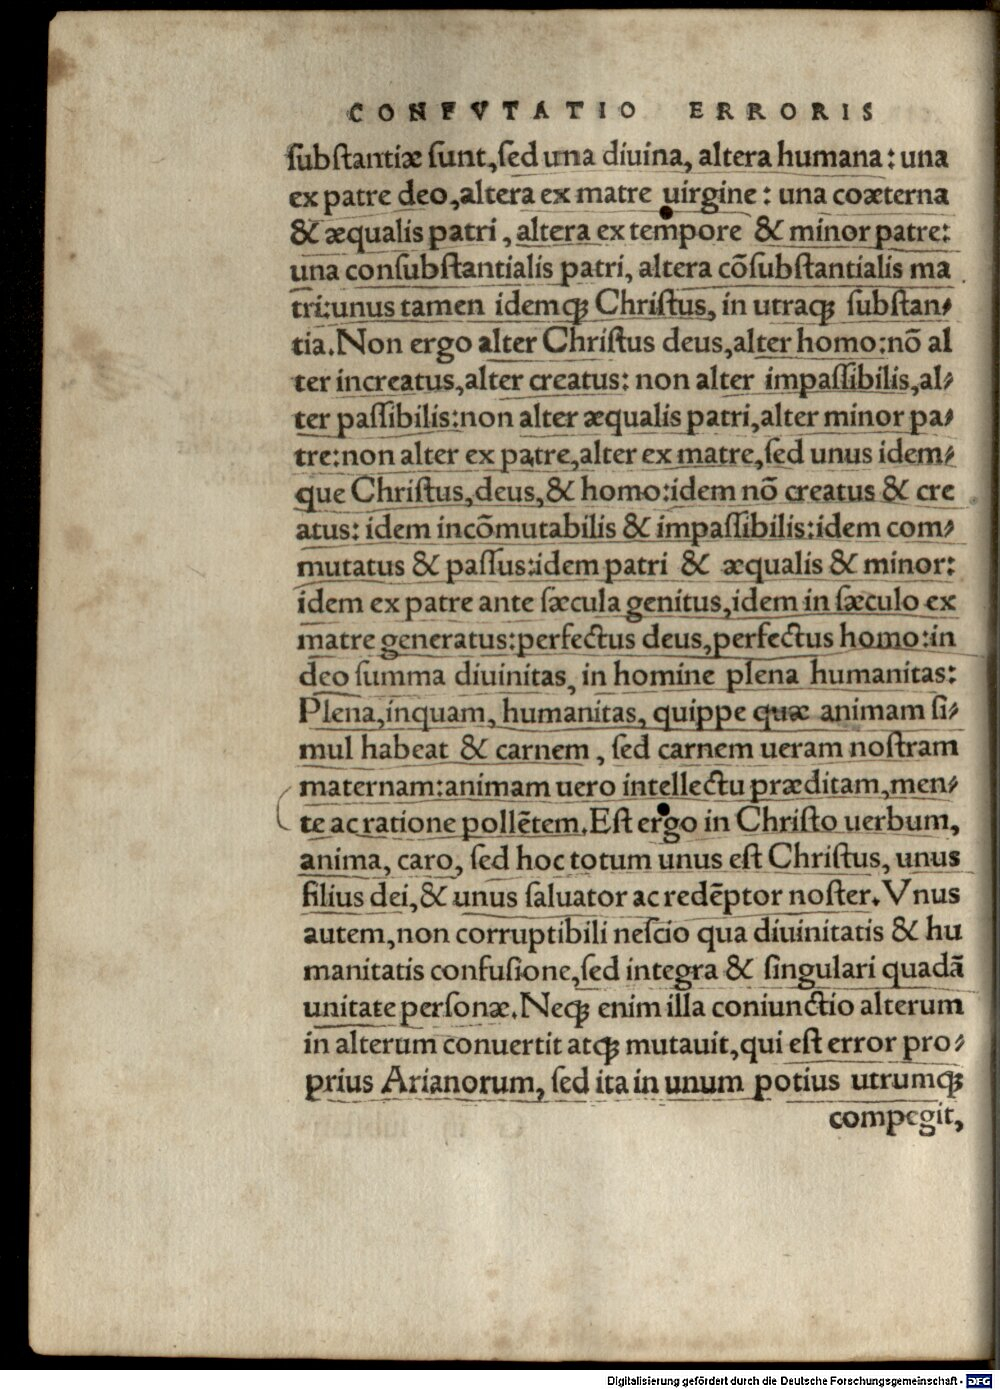 CONFVTATIO ERRORIS
ſubſtantiæ ſunt,ſed una diuina, altera humana: una
ex patre deo,altera ex matre uirgine: una coæterna
& æqualis patri, altera ex tempore & minor patre:
una conſubſtantialis patri, altera cõſubſtantialis ma
tri:unus tamen idemq; Chriſtus, in utraq; ſubſtan⸗
tia.Non ergo alter Chriſtus deus,alter homo:nõ al
ter increatus,alter creatus: non alter impaſſibilis,al⸗
ter paſſibilis:non alter æqualis patri,alter minor pa⸗
tre:non alter ex patre,alter ex matre,ſed unus idem⸗
que Chriſtus,deus,& homo:idem nõ creatus & cre
atus: idem incõmutabilis & impaſſibilis:idem com⸗
mutatus & paſſus:idem patri & æqualis & minor:
idem ex patre ante ſæcula genitus,idem in ſæculo ex
matre generatus:perfectus deus,perfectus homo:in
deo ſumma diuinitas, in homine plena humanitas:
Plena,inquam, humanitas, quippe quæ animam ſi⸗
mul habeat & carnem, ſed carnem ueram noſtram
maternam:animam uero intellectu præditam,men⸗
te ac ratione pollẽtem.Eſt ergo in Chriſto uerbum,
anima, caro, ſed hoc totum unus eſt Chriſtus, unus
filius dei,& unus ſaluator ac redẽptor noſter.Vnus
autem,non corruptibili neſcio qua diuinitatis & hu
manitatis confuſione,ſed integra & ſingulari quadã
unitate perſonæ.Neq; enim illa coniunctio alterum
in alterum conuertit atq; mutauit,qui eſt error pro⸗
prius Arianorum, ſed ita in unum potius utrumq;
compegit,
Digitalisierung gefördert durch die Deutsche Forschungsgemeinschaft - DFG